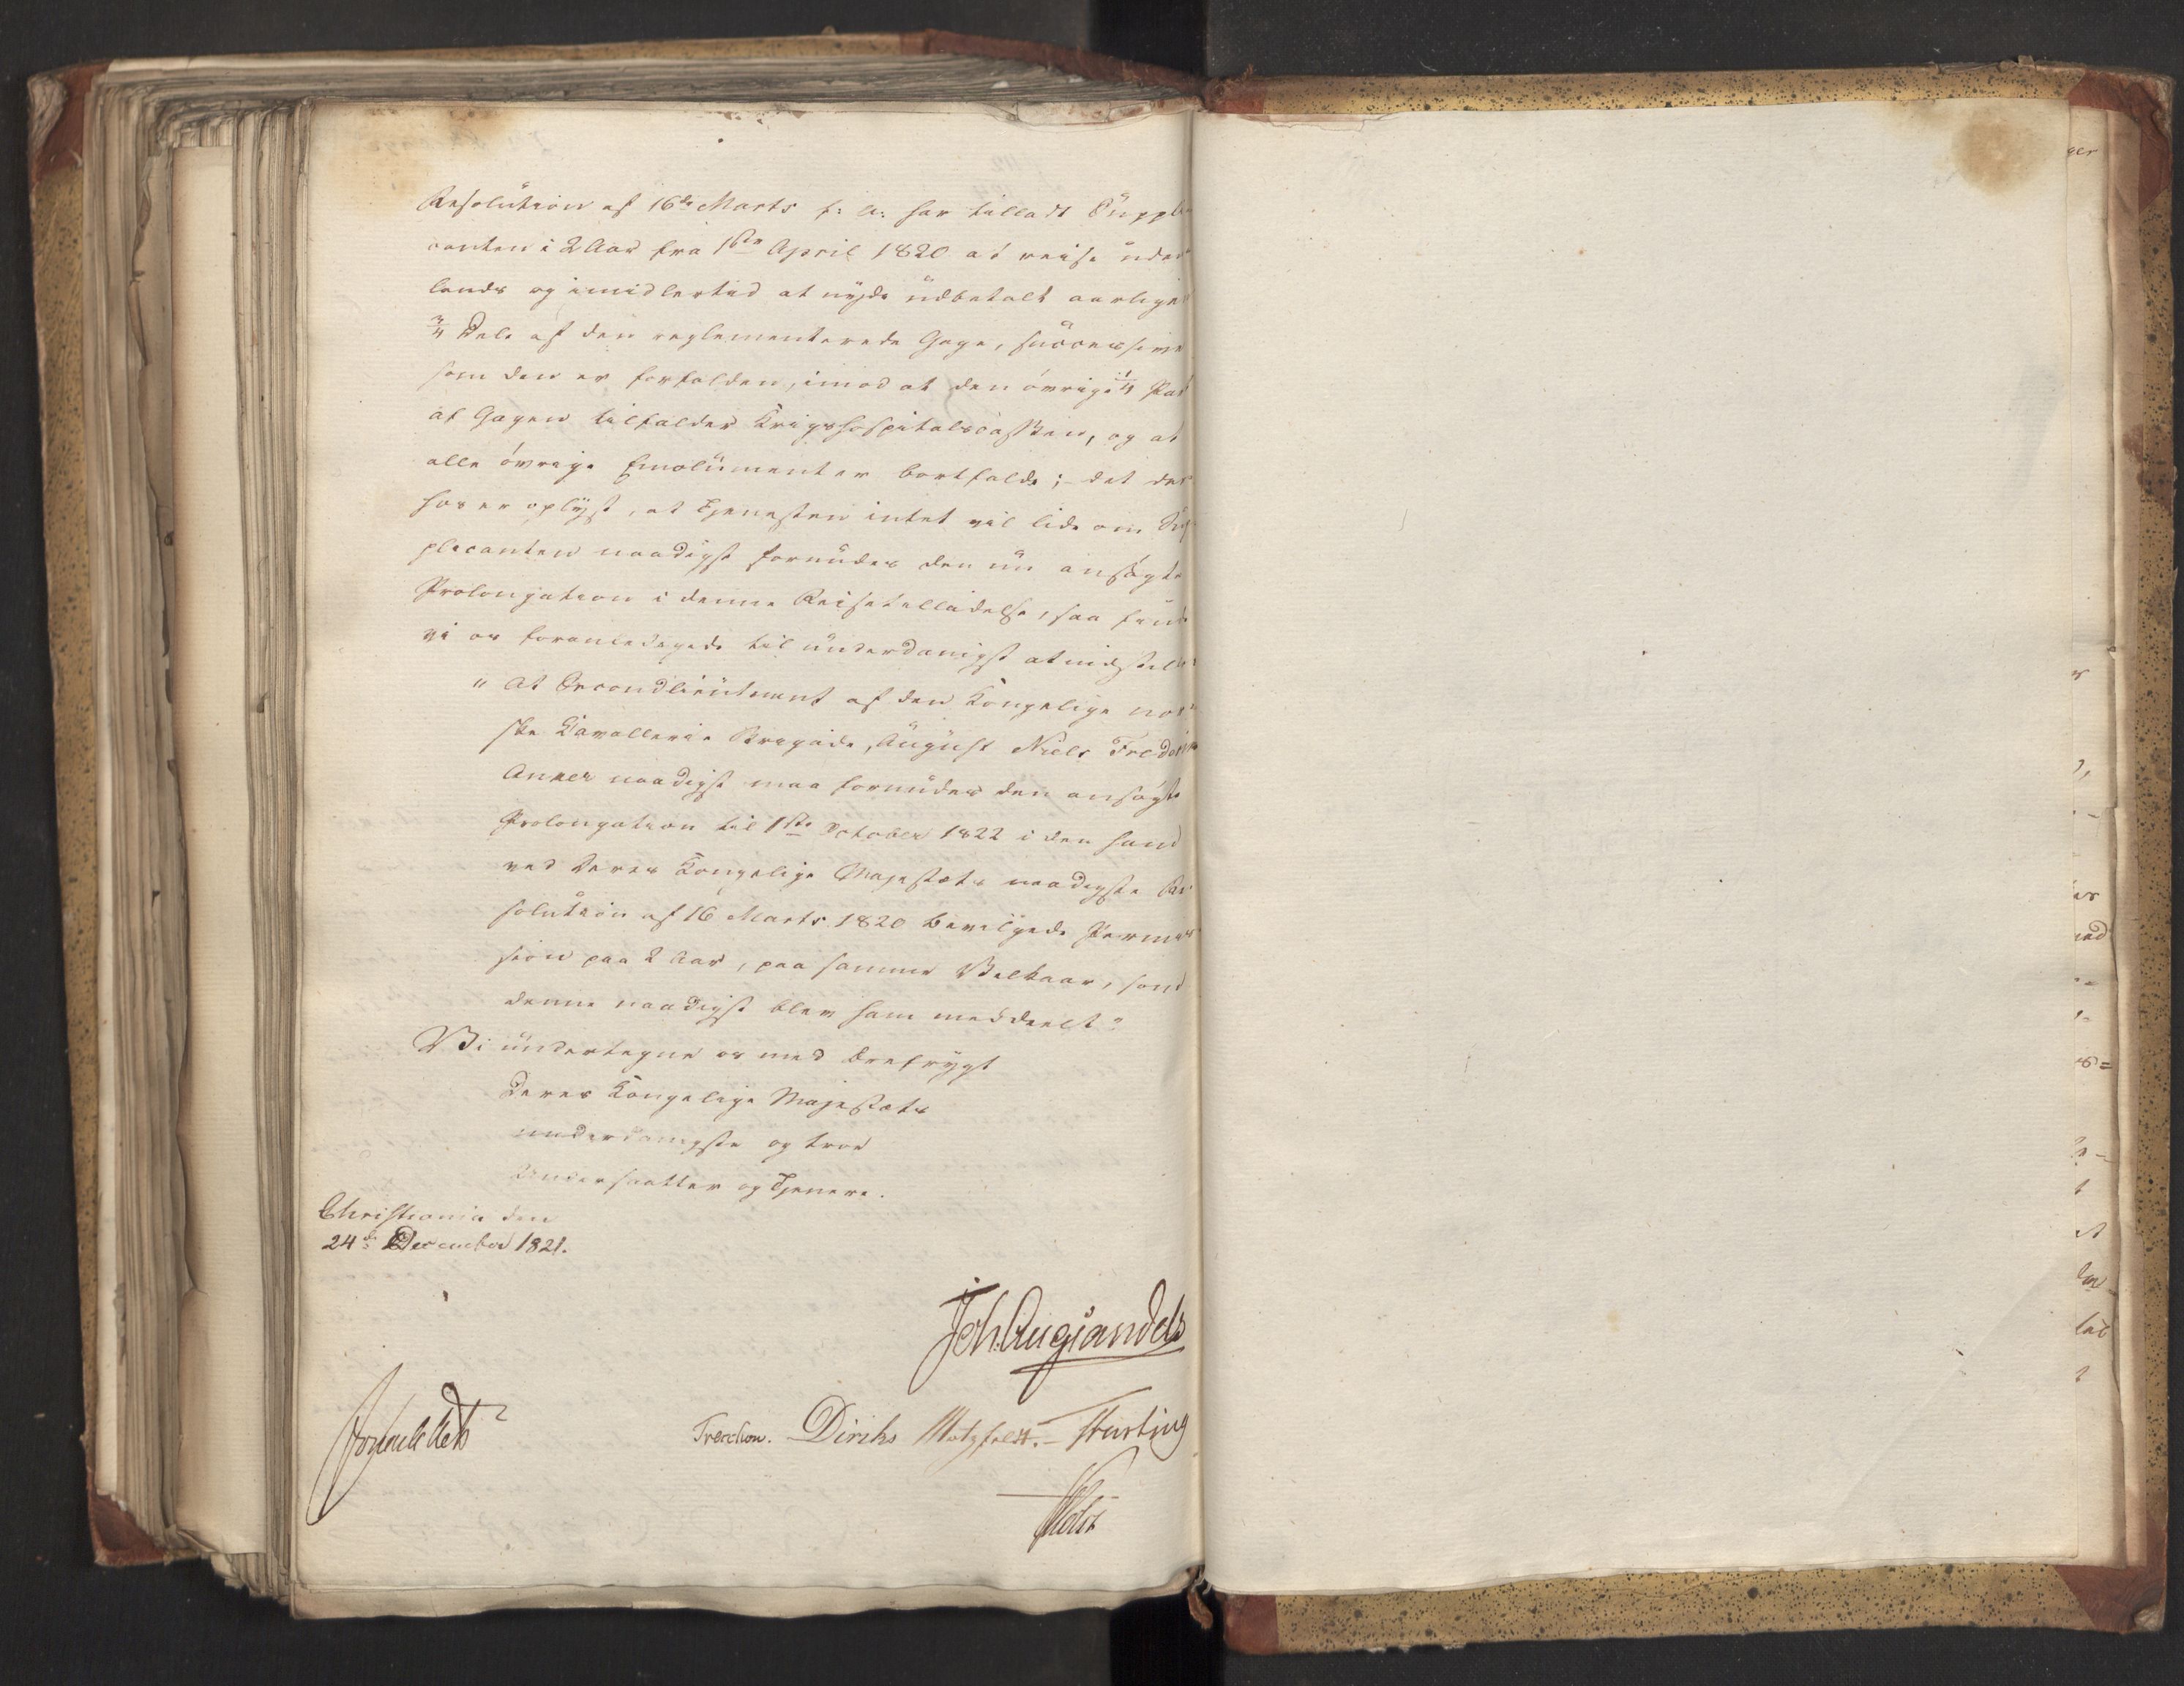 Resolution af 16de Marts f: A: har tilladt Suppli
canten i 2 Aar fra 1ste April 1820 at reise uden
lands og imidlertid at nyde udbetalt aarligen
3/4 Dele af den reglementerede Gage, successive
som den er forfalden, imod at den øvrige 1/4 Part
af Gagen tilfalder Krigshospitalscassen, og at
alle øvrige Emolumenter bortfalde; - det der
hos er oplyst, at Tjenesten intet vil lide om Sup
plicanten naadigst forundes den nu ansøgte
Prolongation i denne Reisetilladelse, saa finde
vi os foranledigede til underdanigst at indstille
" At Secondlieutenant af den Kongelige nor
ske Cavallerie Brigade, August Niels Frederik
Anker naadigst maa forundes den ansøgte
Prolongation til 1ste October 1822 i den ham
ved Deres Kongelige Majestæts naadigste Re
solution af 16 Marts 1820 bevilgede Permis
sion paa 2 Aar, paa samme Vilkaar, som
denne naadigst blev ham meddeelt"
Vi undertegne os med Ærefrygt
Deres Kongelige Majestæts
underdanigste og troe
Undersaatter og Tjenere.
Christiania den
24de December 1821.
Joh. Aug Sandels
Treschow. Diriks Motzfeldt. - Fasting
Holst